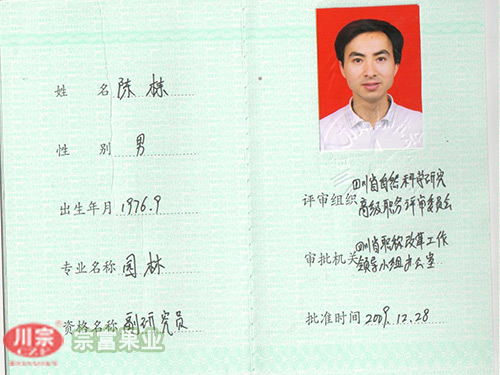 姓 名 陈栋
性 别 男
出生年月 1976.9
专业名称 园林
资格名称 副研究员
评审组织 四川省自然科学研究
高级职务评审委员会
审批机关 四川省职称改革工作
领导小组办公室
批准时间 2009.12.28
川宗
®
宗富果业